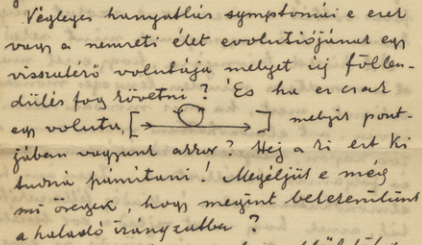 Végleges hanyatlás symptomái e ezek
vagy a nemzeti élet evolutiójának egy
visszatérő volutája melyet új föllen-
dülés fog követni? És ha ez csak
egy voluta, [ ] melyik pont-
jában vagyunk akkor? Hej a ki ezt ki
tudná számitani! Megéljük e még
mi öregek, hogy megint belezenitünk
a haladó irányzatba?